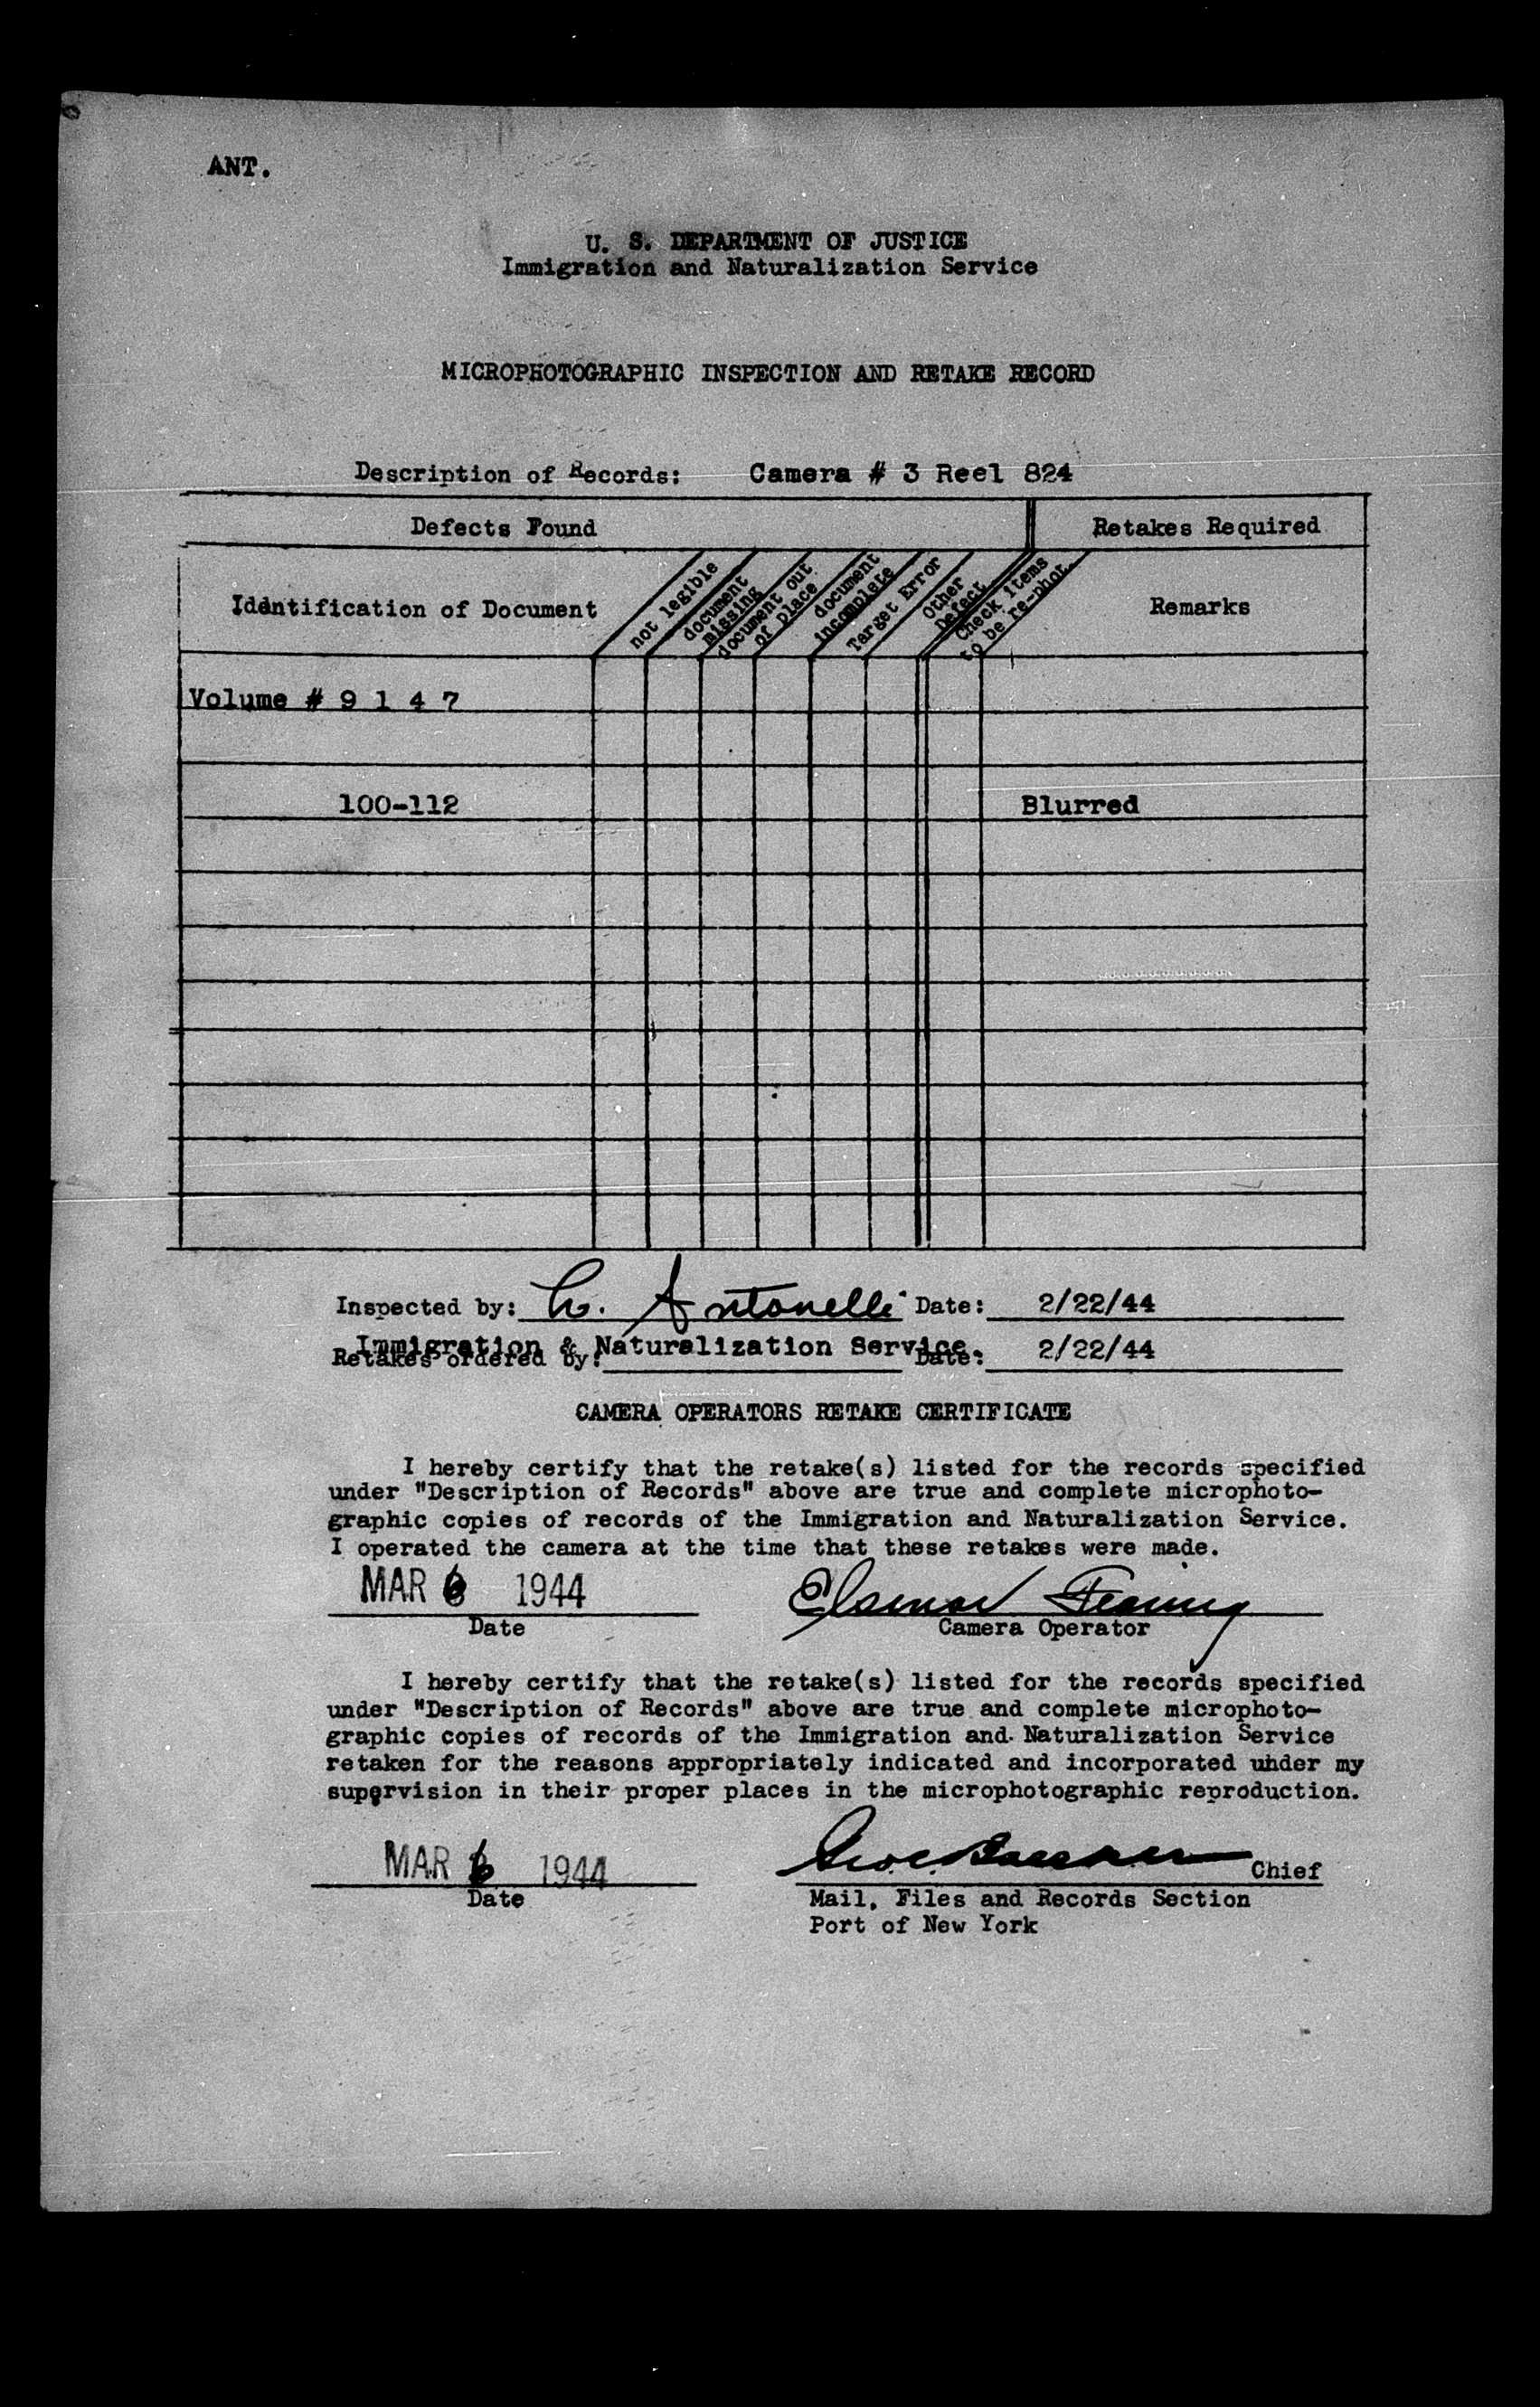 ANT.
U. S. DEPARTMENT OF JUSTICE
Immigration and Naturalization Service
MICROPHOTOGRAPHIC INSPECTION AND RETAKE RECORD
Description of Records: Camera # 3 Reel 824
Defects Found
Retakes Required
Identification of Document
not legible
document
missing
document out
of place
document
incomplete
Target Error
Other
Defect
Check items
to be re-phot.
Remarks
Volume # 9 1 4 7
100-112 Blurred
Inspected by: Antonelli Date: 2/22/44
Immigration & Naturalization Service.
Retakes ordered by: Date: 2/22/44
CAMERA OPERATORS RETAKE CERTIFICATE
I hereby certify that the retake(s) listed for the records specified
under "Description of Records" above are true and complete microphoto-
graphic copies of records of the Immigration and Naturalization Service.
I operated the camera at the time that these retakes were made.
MAR 6 1944
Date
Camera Operator
I hereby certify that the retake(s) listed for the records specified
under "Description of Records" above are true and complete microphoto-
graphic copies of records of the Immigration and Naturalization Service
retaken for the reasons appropriately indicated and incorporated under my
supervision in their proper places in the microphotographic reproduction.
MAR 6 1944
Chief
Date
Mail, Files and Records Section
Port of New York